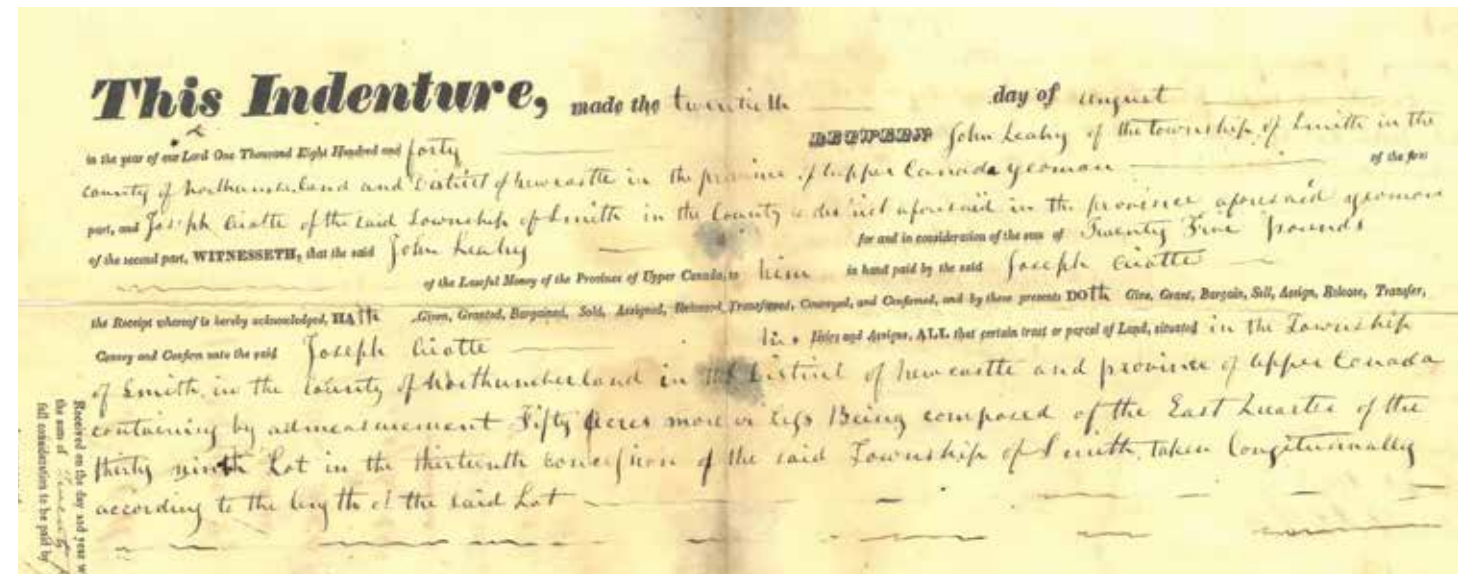 This Indenture, made the twentieth day of august
in the year of our Lord One Thousand Eight Hundred and forty BETWEEN John Leahy of the township of Smith in the
county of Northumberland and District of Newcastle in the province of upper Canada yeoman of the first
part, and Joseph of the said Township of Smith in the County & district aforesaid in the province aforesaid yeoman
of the second part, WITNESSETH, that the said John Leahy for and in consideration of the sum of Twenty Five pounds
of the Lawful Money of the Province of Upper Canada, to him in hand paid by the said Joseph
the Receipt whereof is hereby acknowledged, HAth Given, Granted, Bargained, Sold, Assigned, Released, Transferred, Conveyed, and Confirmed, and by these presents DOth Give, Grant, Bargain, Sell, Assign, Release, Transfer,
Convey and Confirm unto the said Joseph his Heirs and Assigns, ALL that certain tract or parcel of Land, situated in the Township
of Smith, in the County of Northumberland in the District of Newcastle and province of upper Canada
containing by admeasurement Fifty acres more or less Being composed of the East Quarter of the
thirty ninth Lot in the thirteenth concession of the said Township of Smith, taken Longitunnally
according to the length of the said Lot
Received on the day and year
the sum of Twenty
full consideration to be paid by